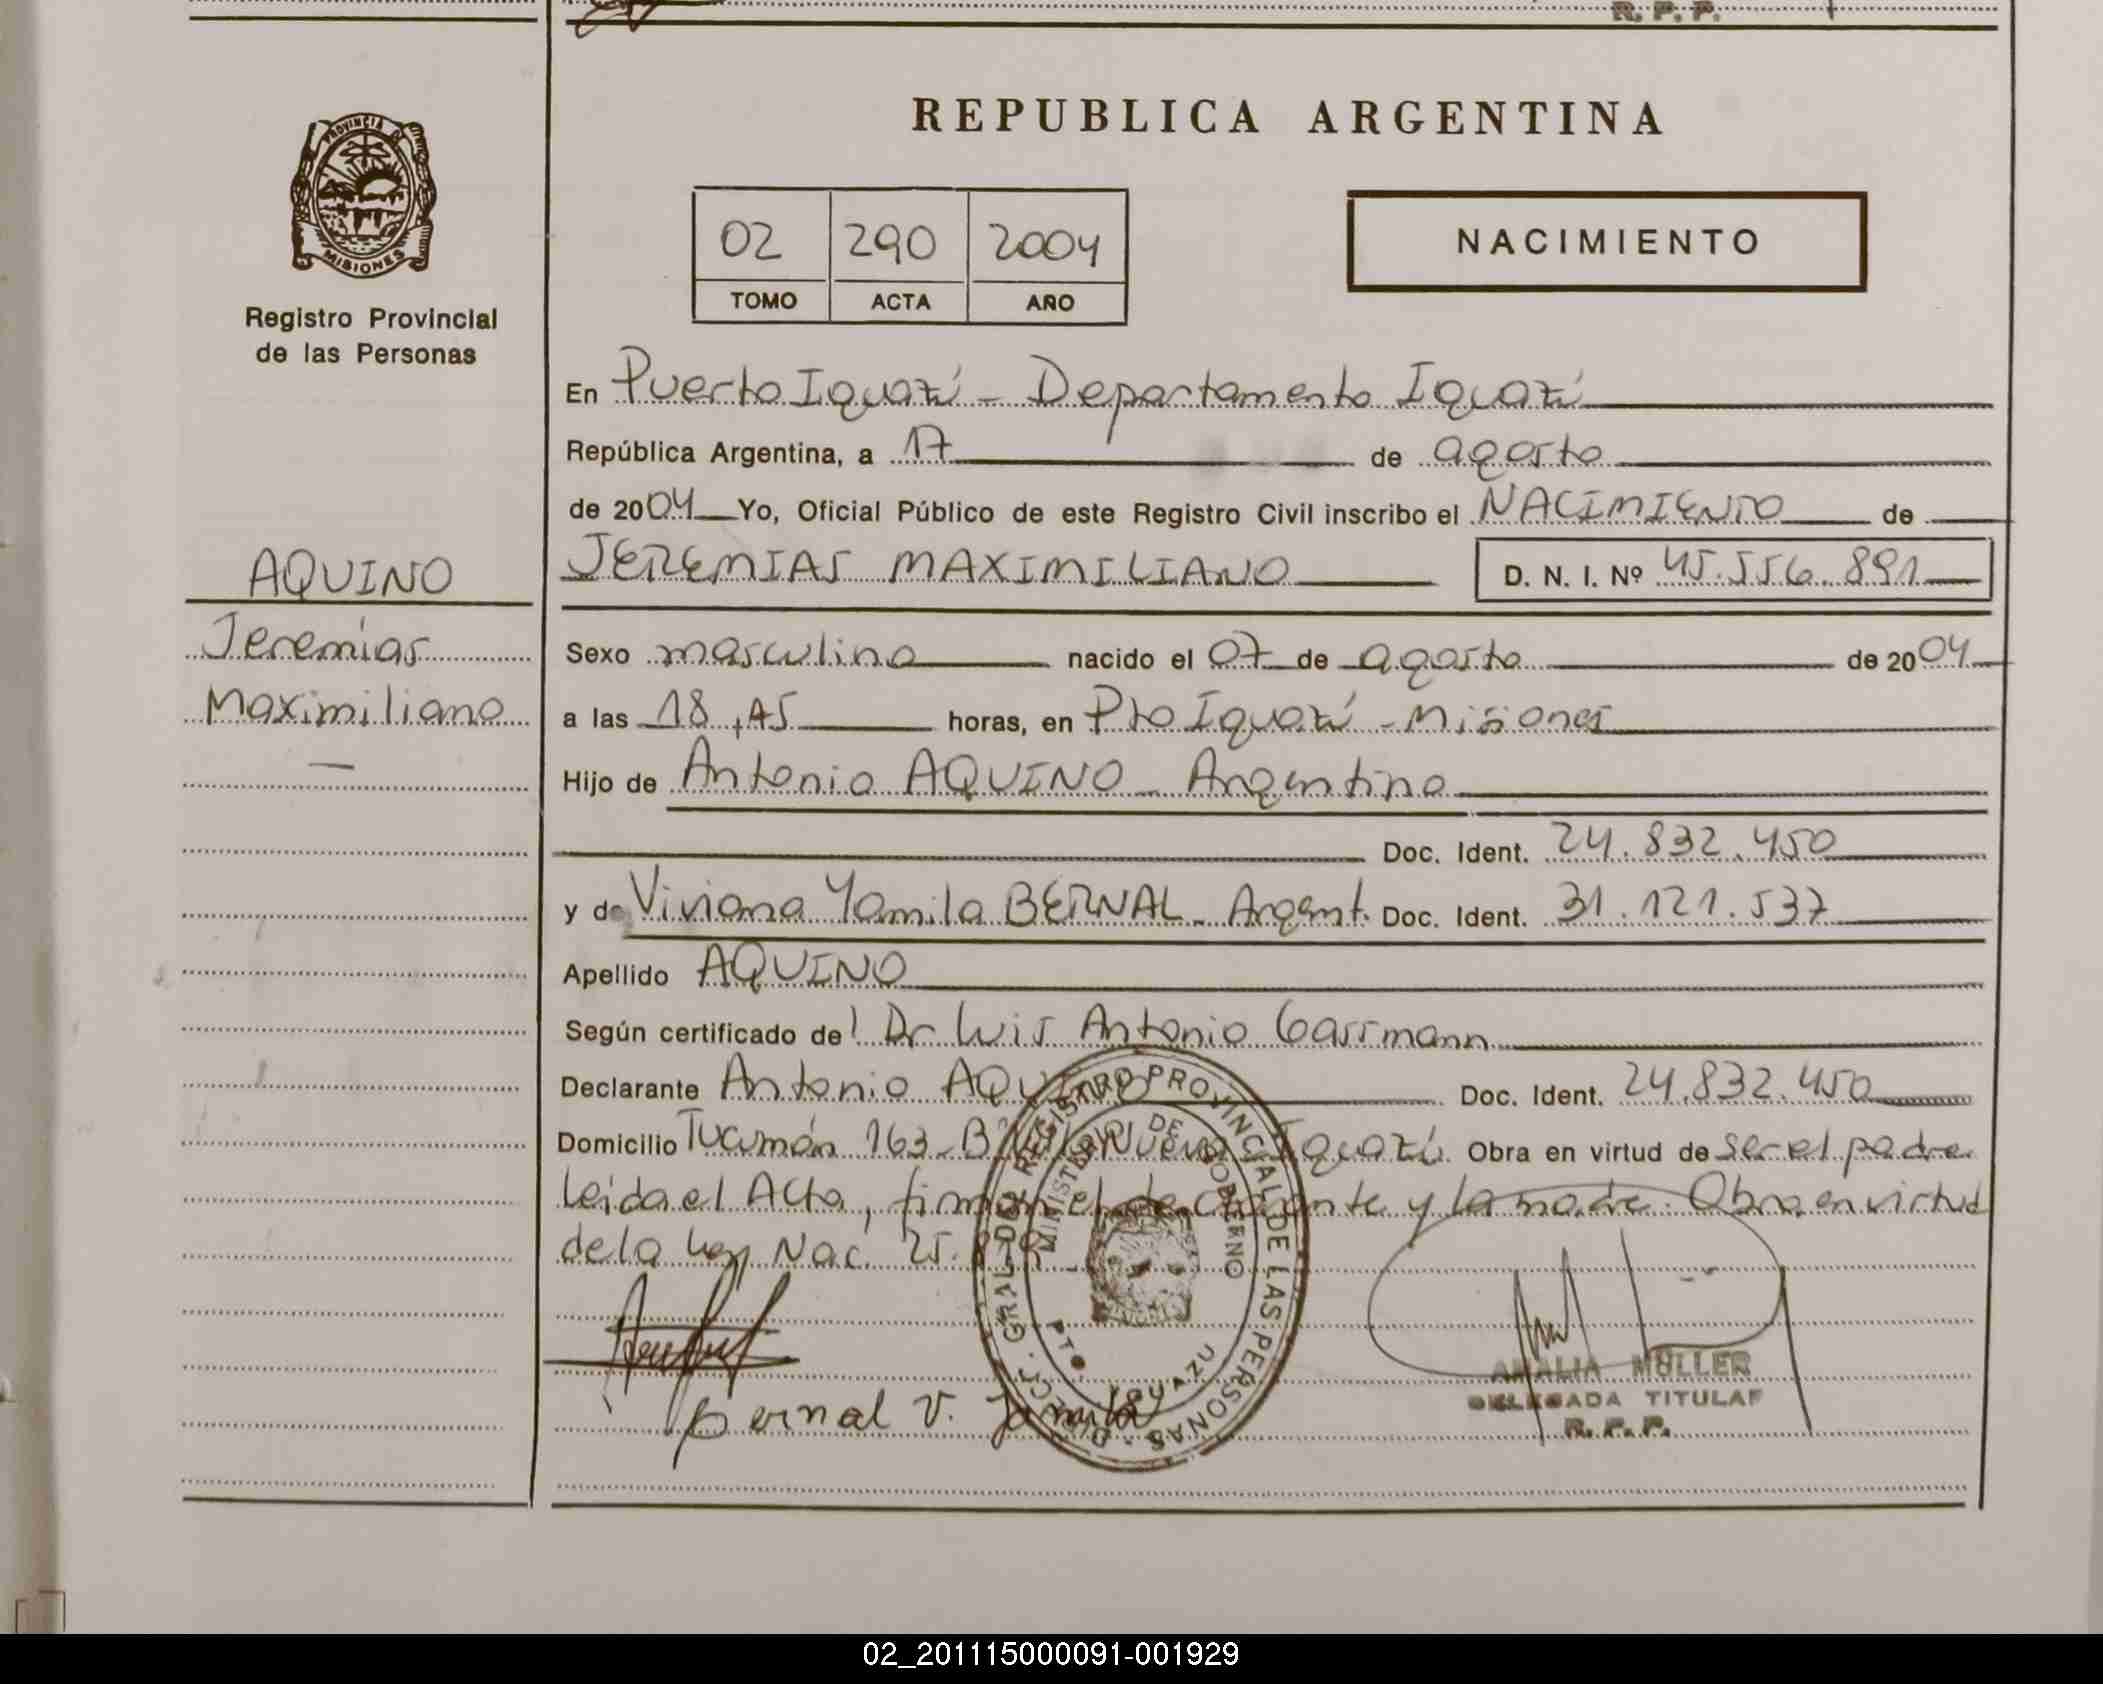 R. P. P.
REPUBLICA ARGENTINA
PROVINCIA DE
MISIONES
Registro Provincial
de las Personas
02 290 2004
TOMO ACTA AÑO
NACIMIENTO
En Puerto Iguazú - Departamento Iguazú
República Argentina, a 17 de agosto
de 2004 Yo, Oficial Público de este Registro Civil inscribo el NACIMIENTO de
AQUINO
JEREMIAS MAXIMILIANO D. N. I. Nº 45.556.891
Jeremias
Sexo masculino nacido el 07 de agosto de 2004
Maximiliano
a las 18,45 horas, en Pto Iguazú - Misiones
Hijo de Antonio AQUINO - Argentino
Doc. Ident. 24.832.450
y de Viviana Yamila BERNAL - Argent. Doc. Ident. 31.121.537
Apellido AQUINO
Según certificado del Dr Luis Antonio Gassmann
Declarante Antonio AQUINO Doc. Ident. 24.832.450
Domicilio Tucumán 163 - Iguazú. Obra en virtud de ser el padre
leida el Acta, firman el declarante y la madre. Obra en virtud
de la Ley Nac. 25.
DIRECC. GRAL. DEL REGISTRO PROVINCIAL DE LAS PERSONAS
MINISTERIO DE GOBIERNO
PTO. IGUAZU
Bernal V. Yamila
AMALIA MÜLLER
DELEGADA TITULAR
R. P. P.
02_201115000091-001929